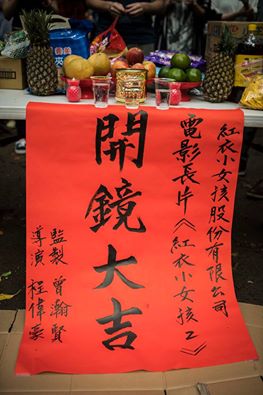 紅衣小女孩股份有限公司
電影長片《紅衣小女孩2》
開鏡大吉
監製 曾瀚賢
導演 程偉豪